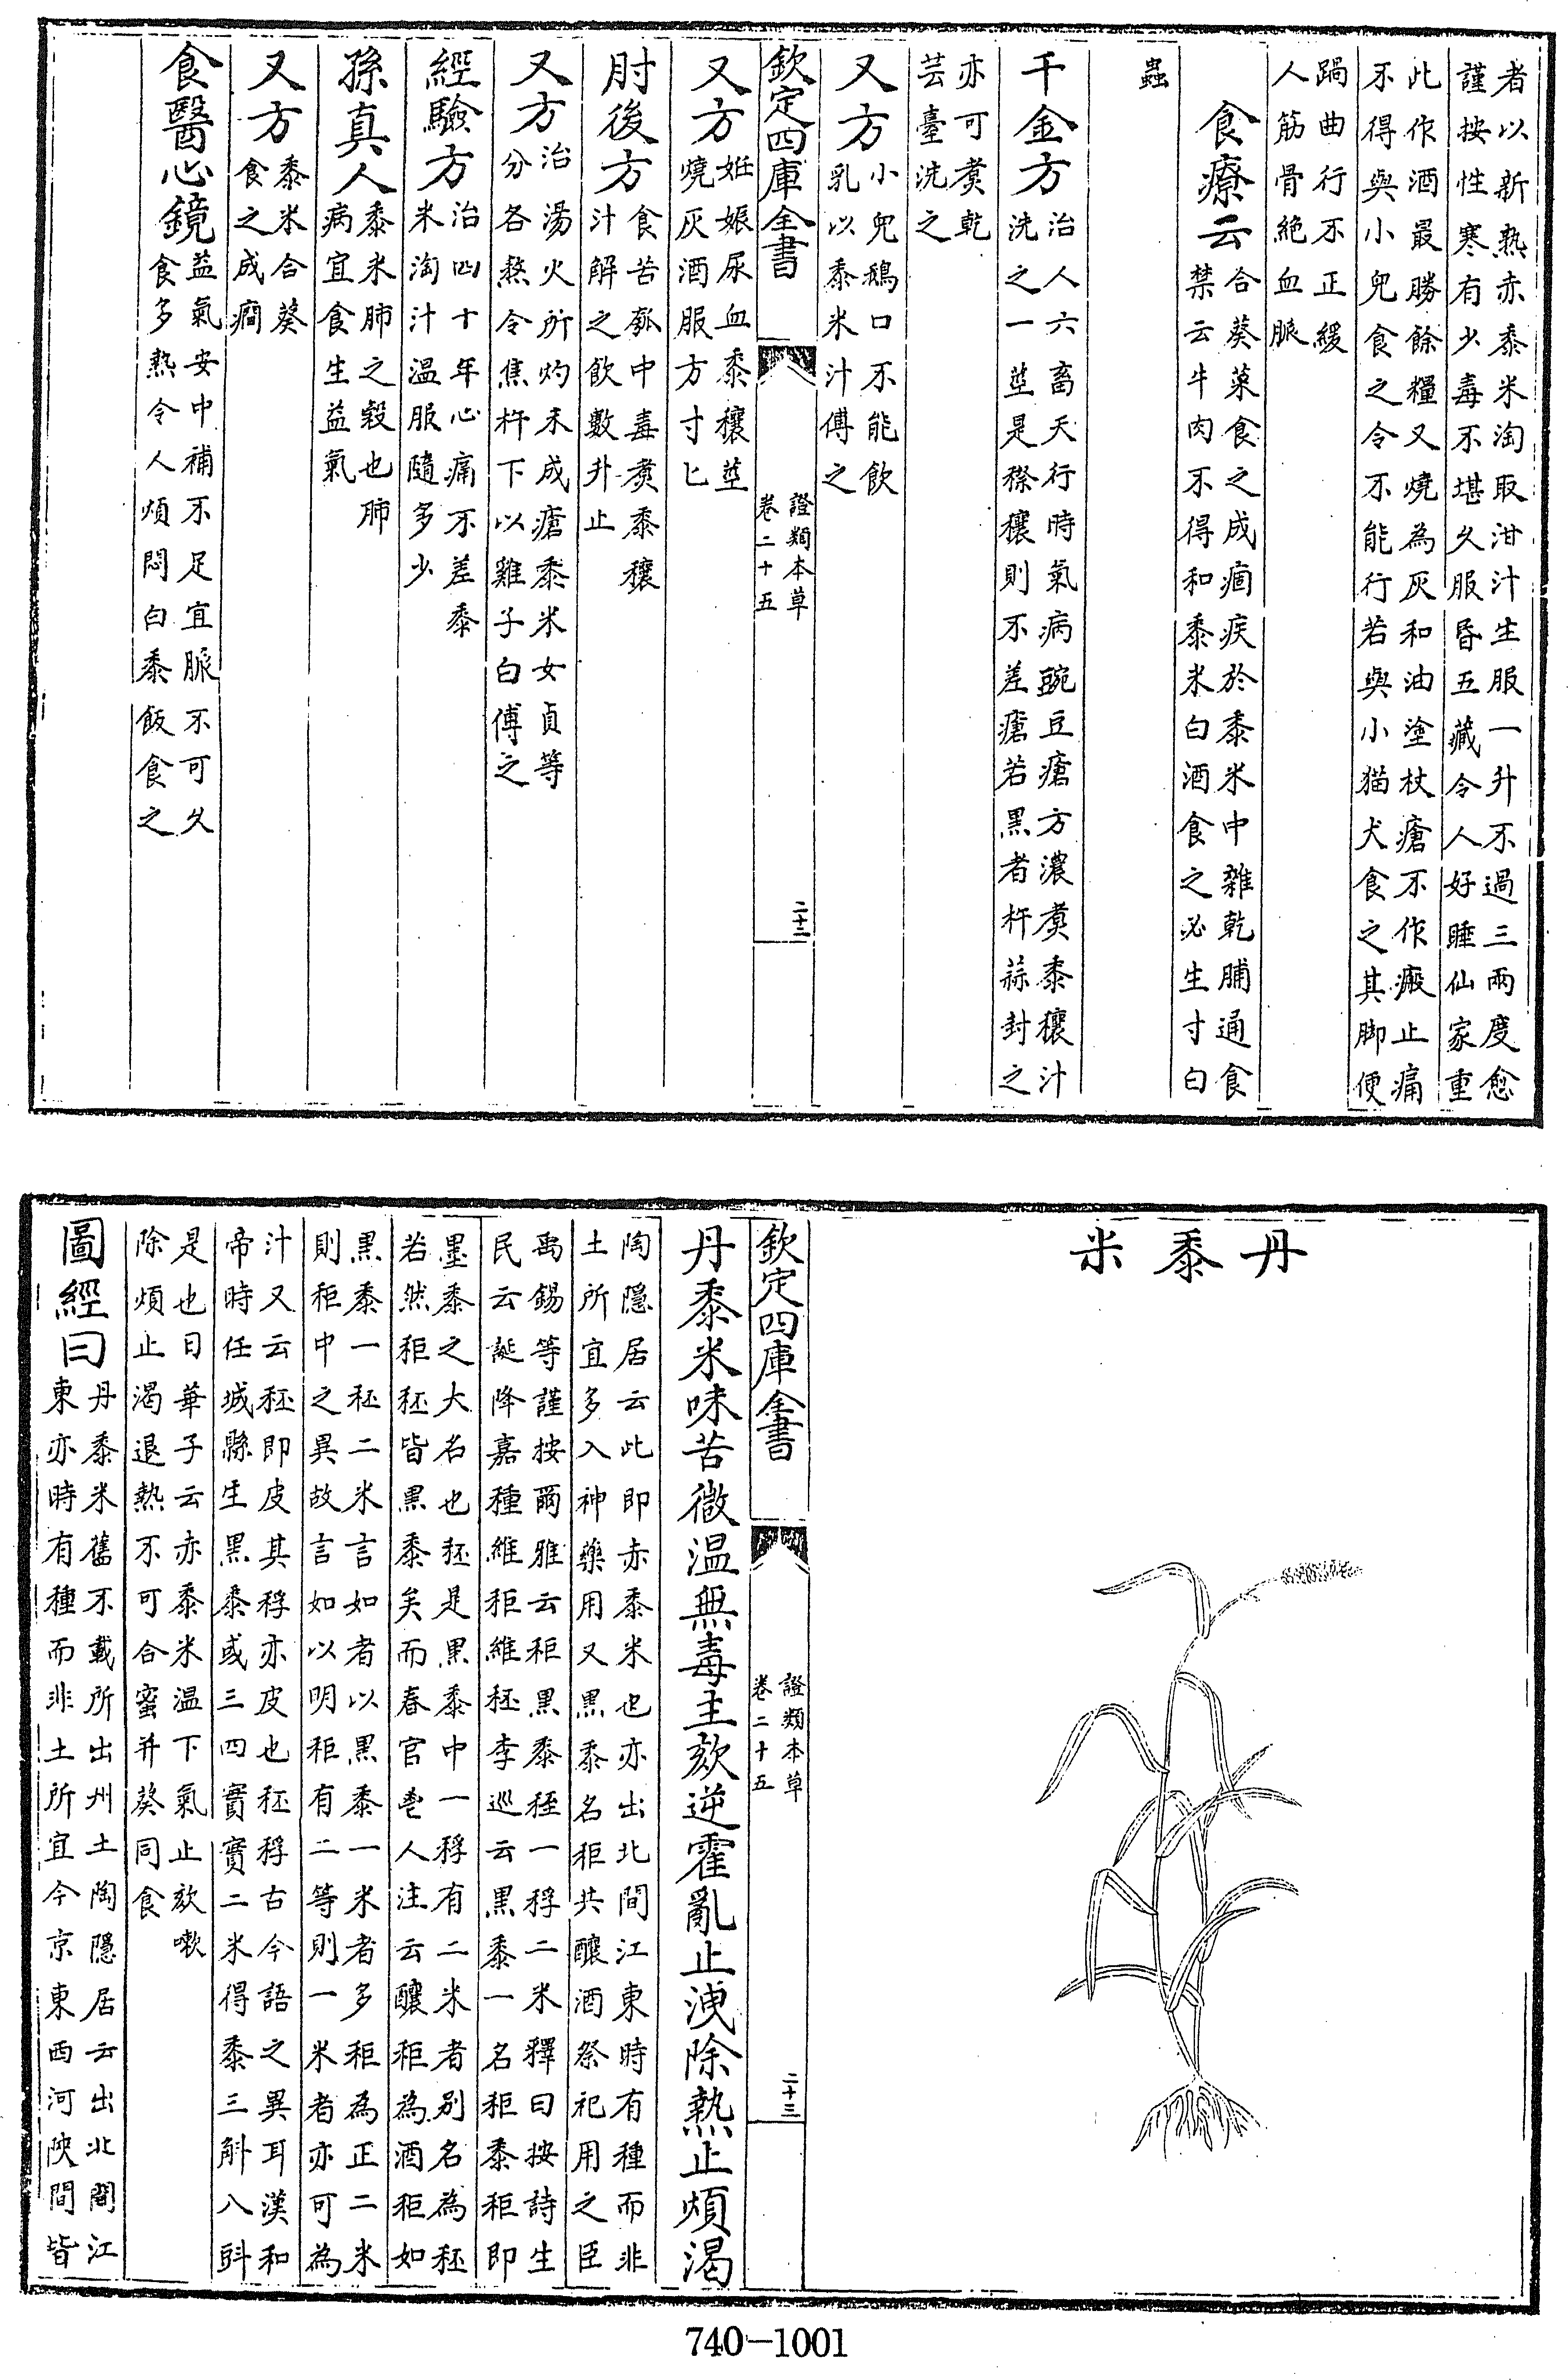 者以新熟赤黍米淘取泔汁生服一升不過三兩度愈
謹按性寒有少毒不堪久服昏五藏令人好睡仙家重
此作酒最勝餘糧又燒為灰和油塗杖瘡不作瘢止痛
不得與小兒食之令不能行若與小猫犬食之其脚便
跼曲行不正緩
人筋骨絶血脈
食療云
合葵菜食之成痼疾於黍米中雜乾脯通食
禁云牛肉不得和黍米白酒食之必生寸白
蟲
千金方
治人六畜天行時氣病豌豆瘡方濃煑黍穰汁
洗之一莖是穄穰則不差瘡若黑者杵蒜封之
亦可煑乾
芸薹洗之
又方
小兒鵝口不能飲
乳以黍米汁傅之
欽定四庫全書
證類本草
卷二十五
二十三
又方
姙娠尿血黍穰莖
燒灰酒服方寸匕
肘後方
食苦瓠中毒煑黍穰
汁解之飲數升止
又方
治湯火所灼未成瘡黍米女貞等
分各熬令焦杵下以雞子白傅之
經驗方
治四十年心痛不差黍
米淘汁温服隨多少
孫真人
黍米肺之穀也肺
病宜食生益氣
又方
黍米合葵
食之成癎
食醫心鏡
益氣安中補不足宜脈不可久
食多熱令人煩悶白黍飯食之
丹黍米
欽定四庫全書
證類本草
卷二十五
二十三
丹黍米味苦微温無毒主欬逆霍亂止洩除熱止煩渴
陶隱居云此即赤黍米也亦出北間江東時有種而非
土所宜多入神藥用又黑黍名秬共釀酒祭祀用之臣
禹錫等謹按爾雅云秬黑黍秠一稃二米釋曰按詩生
民云誕降嘉種維秬維秠李巡云黑黍一名秬黍秬即
黑黍之大名也秠是黑黍中一稃有二米者别名為秠
若然秬秠皆黑黍矣而春官鬯人注云釀秬為酒秬如
黑黍一秠二米言如者以黑黍一米者多秬為正二米
則秬中之異故言如以明秬有二等則一米者亦可為
汁又云秠即皮其稃亦皮也秠稃古今語之異耳漢和
帝時任城縣生黑黍或三四實實二米得黍三斛八㪷
是也日華子云赤黍米温下氣止欬嗽
除煩止渴退熱不可合蜜并葵同食
圖經曰
丹黍米舊不載所出州土陶隱居云出北間江
東亦時有種而非土所宜今京東西河陜間皆
740-1001